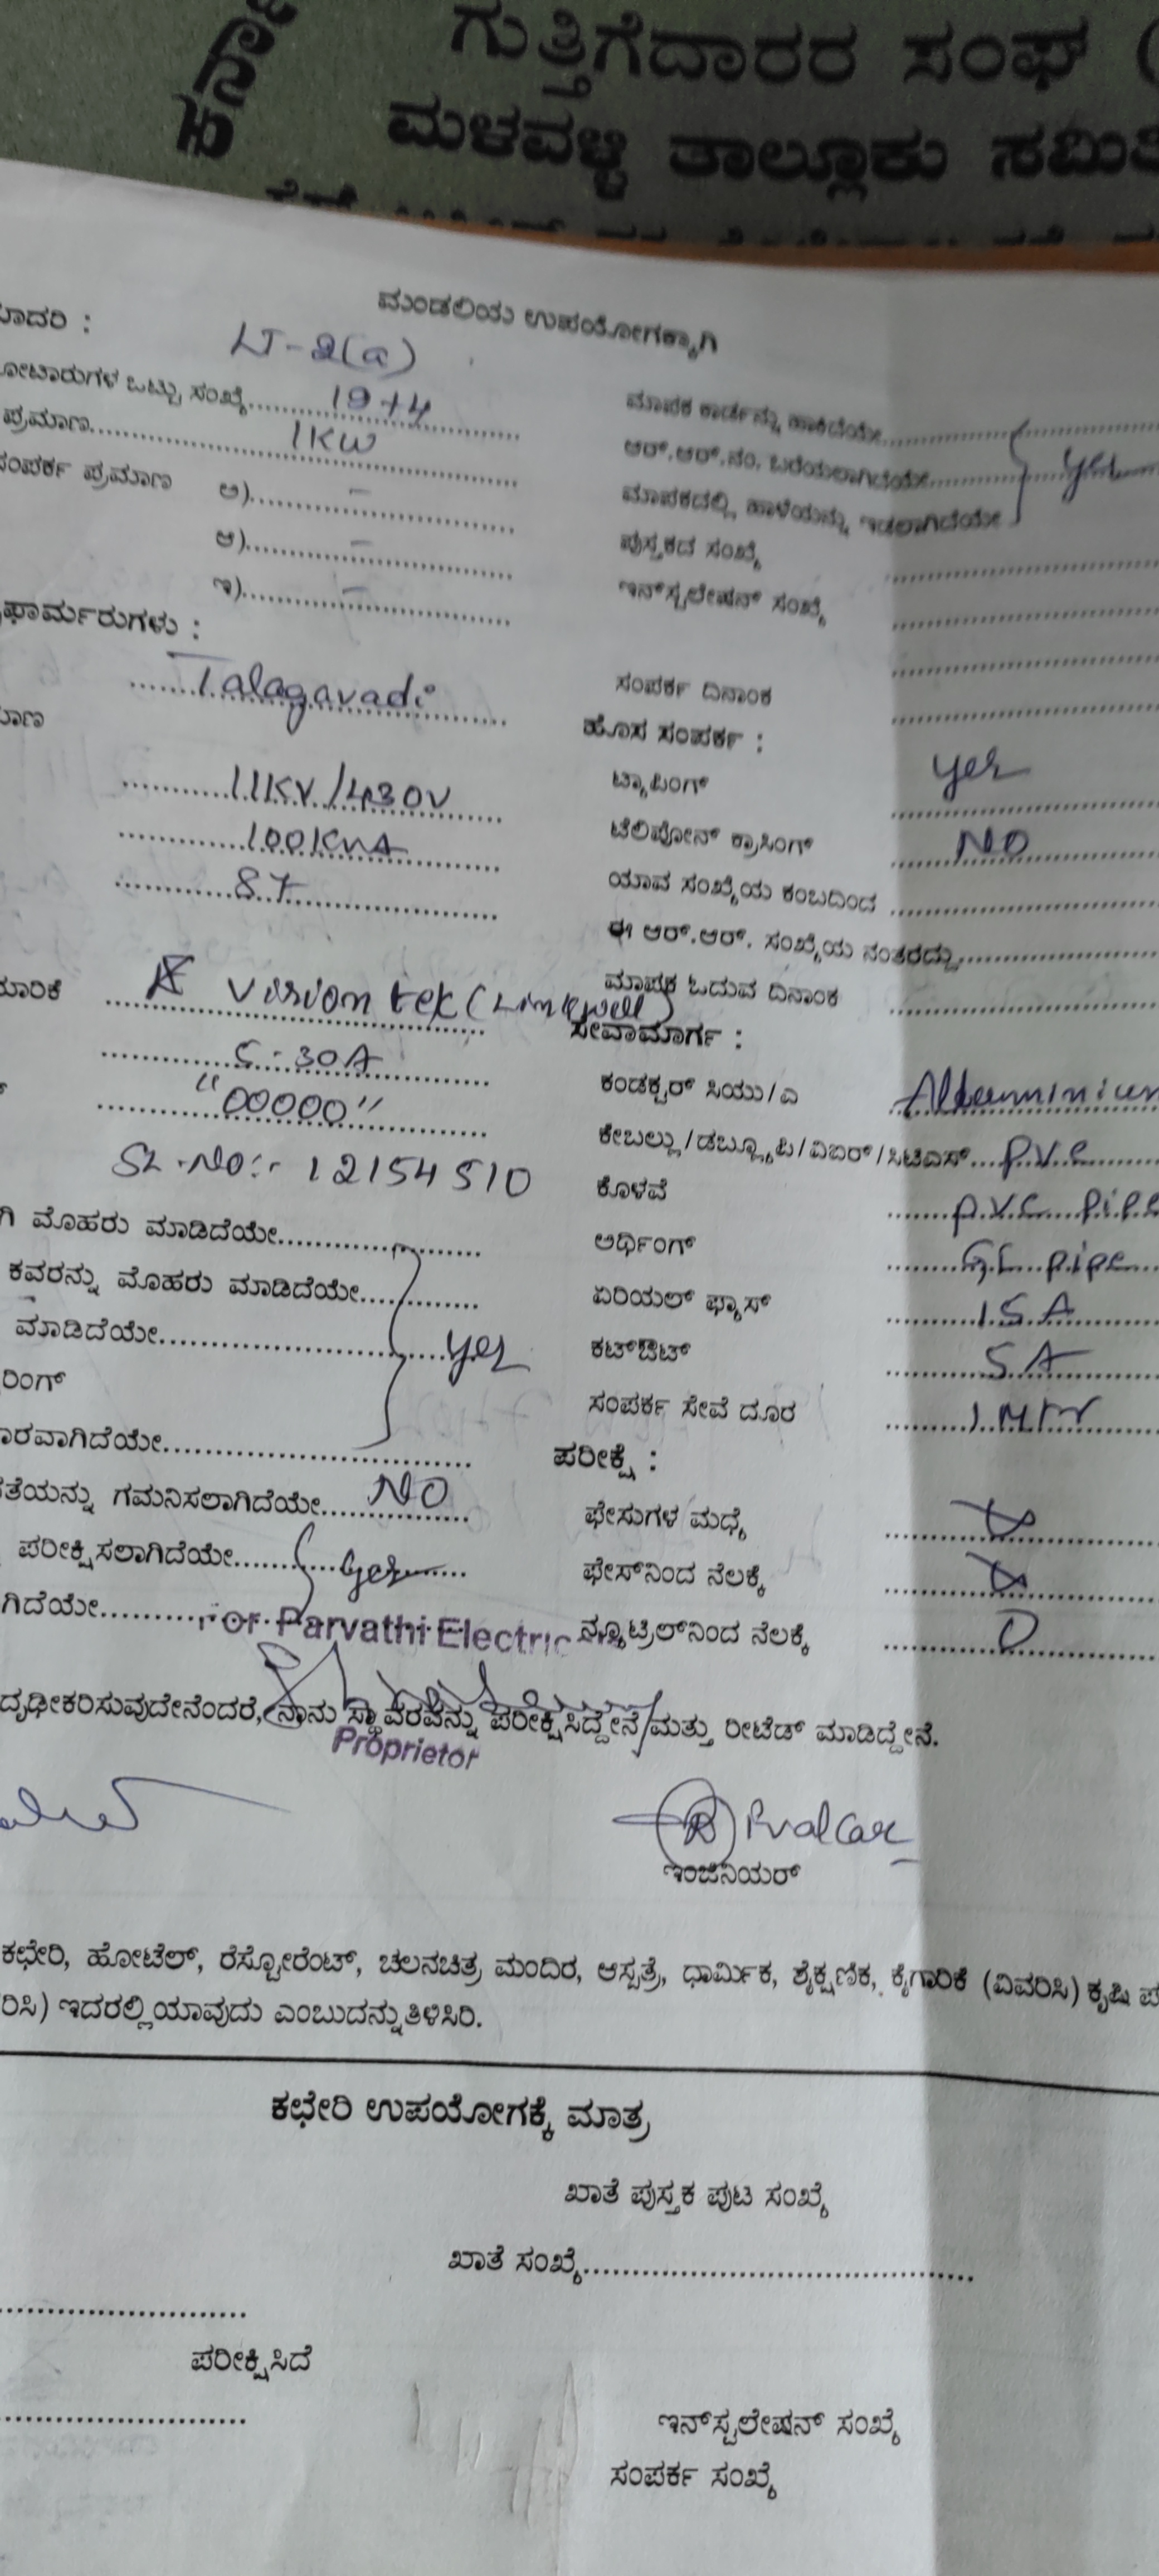 ಗುತ್ತಿಗೆದಾರರ ಸಂಘ (
ಮಳವಳ್ಳಿ ತಾಲ್ಲೂಕು ಸಮಿತಿ
ಮಂಡಲಿಯ ಉಪಯೋಗಕ್ಕಾಗಿ
ಾದರಿ : LT-2(a)
ೋಟಾರುಗಳ ಒಟ್ಟು ಸಂಖ್ಯೆ 19+4
ಪ್ರಮಾಣ 1KW
ಸಂಪರ್ಕ ಪ್ರಮಾಣ ಅ) -
ಆ) -
ಇ) -
ಫಾರ್ಮರುಗಳು :
Talagavadi
ಮಾಣ
11KV/430V
100KVA
ಯಾರಿಕೆ Visiontek (Linkwell)
5-30A
"00000"
SL.NO:- 12154510
ಗಿ ಮೊಹರು ಮಾಡಿದೆಯೇ
ಕವರನ್ನು ಮೊಹರು ಮಾಡಿದೆಯೇ
ಮಾಡಿದೆಯೇ yes
ರಿಂಗ್
ಾರವಾಗಿದೆಯೇ
ತೆಯನ್ನು ಗಮನಿಸಲಾಗಿದೆಯೇ NO
ಪರೀಕ್ಷಿಸಲಾಗಿದೆಯೇ yes
ಗಿದೆಯೇ
ಮಾಪಕ ಕಾರ್ಡನ್ನು ಹಾಕಿದೆಯೇ
ಆರ್.ಆರ್.ನಂ. ಬರೆಯಲಾಗಿದೆಯೇ yes
ಮಾಪಕದಲ್ಲಿ ಹಾಳೆಯನ್ನು ಇಡಲಾಗಿದೆಯೇ
ಪುಸ್ತಕದ ಸಂಖ್ಯೆ
ಇನ್‌ಸ್ಟಲೇಷನ್ ಸಂಖ್ಯೆ
ಸಂಪರ್ಕ ದಿನಾಂಕ
ಹೊಸ ಸಂಪರ್ಕ :
ಟ್ಯಾಪಿಂಗ್ yes
ಟೆಲಿಪೋನ್ ಕ್ರಾಸಿಂಗ್ NO
ಯಾವ ಸಂಖ್ಯೆಯ ಕಂಬದಿಂದ
ಈ ಆರ್.ಆರ್. ಸಂಖ್ಯೆಯ ನಂತರದ್ದು
ಮಾಪಕ ಓದುವ ದಿನಾಂಕ
ಸೇವಾಮಾರ್ಗ :
ಕಂಡಕ್ಟರ್ ಸಿಯು/ಎ
ಕೇಬಲ್ಲು/ಡಬ್ಲ್ಯೂಪಿ/ವಿಐಆರ್/ಸಿಟಿಎಸ್ P.V.C
ಕೊಳವೆ P.V.C pipe
ಅರ್ಥಿಂಗ್ G.I. pipe
ಏರಿಯಲ್ ಫ್ಯೂಸ್ 15A
ಕಟ್‌ಔಟ್ 5A
ಸಂಪರ್ಕ ಸೇವೆ ದೂರ
ಪರೀಕ್ಷೆ :
ಫೇಸುಗಳ ಮಧ್ಯೆ
ಫೇಸ್‌ನಿಂದ ನೆಲಕ್ಕೆ
ನ್ಯೂಟ್ರಲ್‌ನಿಂದ ನೆಲಕ್ಕೆ 0
For Parvathi Electric
ದೃಢೀಕರಿಸುವುದೇನೆಂದರೆ, ನಾನು ಸ್ಥಾವರವನ್ನು ಪರೀಕ್ಷಿಸಿದ್ದೇನೆ ಮತ್ತು ರೀಟೆಡ್ ಮಾಡಿದ್ದೇನೆ.
Proprietor
ಇಂಜಿನಿಯರ್
ಕಛೇರಿ, ಹೋಟೆಲ್, ರೆಸ್ಟೋರೆಂಟ್, ಚಲನಚಿತ್ರ ಮಂದಿರ, ಆಸ್ಪತ್ರೆ, ಧಾರ್ಮಿಕ, ಶೈಕ್ಷಣಿಕ, ಕೈಗಾರಿಕೆ (ವಿವರಿಸಿ) ಕೃಷಿ ಪ
ರಿಸಿ) ಇದರಲ್ಲಿ ಯಾವುದು ಎಂಬುದನ್ನು ತಿಳಿಸಿರಿ.
ಕಛೇರಿ ಉಪಯೋಗಕ್ಕೆ ಮಾತ್ರ
ಖಾತೆ ಪುಸ್ತಕ ಪುಟ ಸಂಖ್ಯೆ
ಖಾತೆ ಸಂಖ್ಯೆ
ಪರೀಕ್ಷಿಸಿದೆ
ಇನ್‌ಸ್ಟಲೇಷನ್ ಸಂಖ್ಯೆ
ಸಂಪರ್ಕ ಸಂಖ್ಯೆ